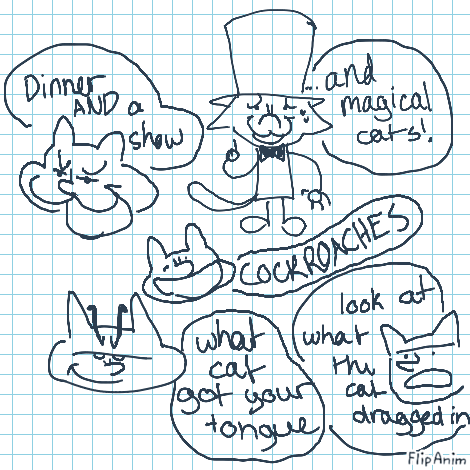 Dinner
AND a
show
...and
magical
cats!
COCKROACHES
what
cat
got your
tongue
look at
what
thu
cat
dragged in
FlipAnim